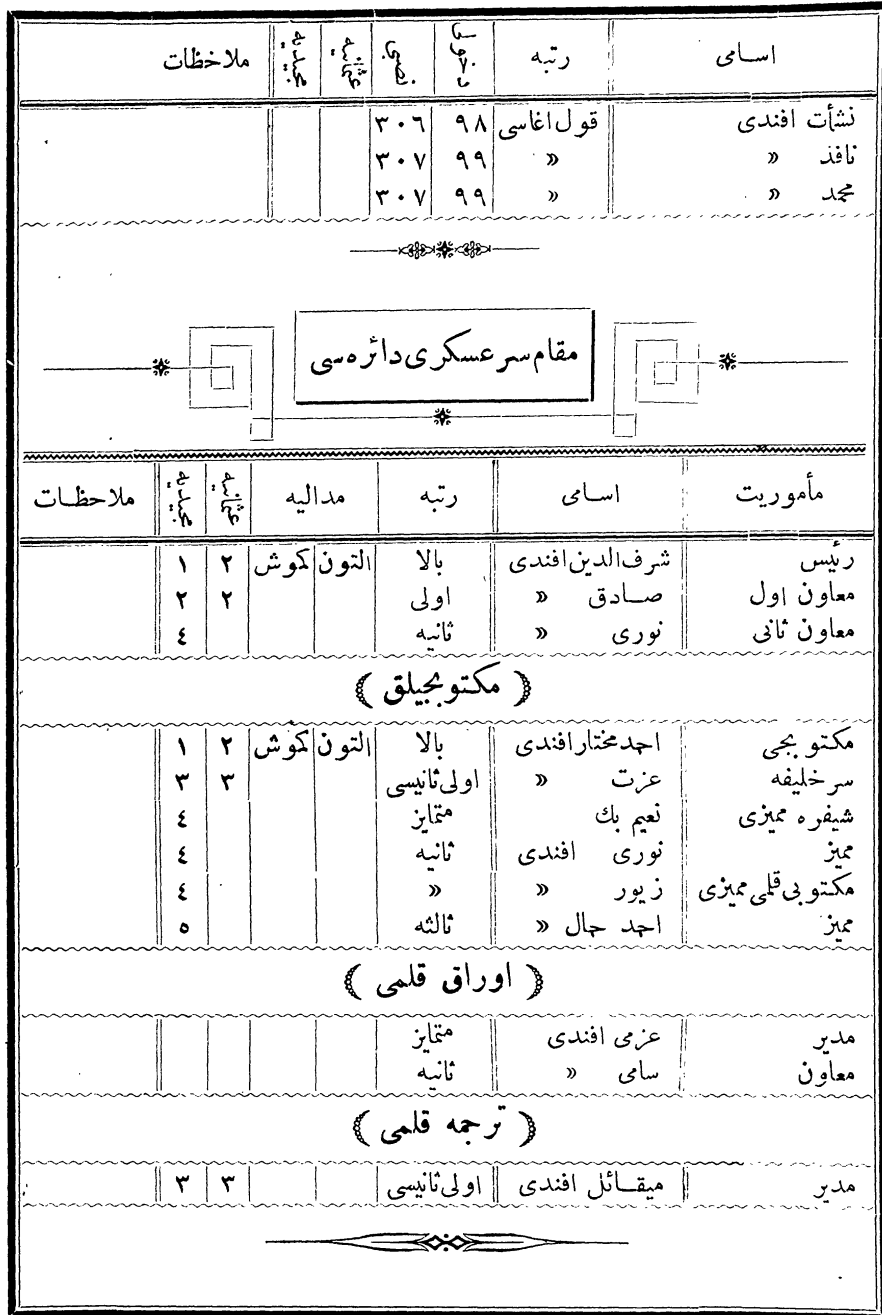 اسامی رتبه دخولی نصبی عثمانیه مجیدیه ملاحظات
نشأت افندی قول اغاسی ٩٨ ٣٠٦
نافذ » » ٩٩ ٣٠٧
محمد » » ٩٩ ٣٠٧
مقام سر عسکری دائره سی
مأموریت اسامی رتبه مدالیه عثمانیه مجیدیه ملاحظات
رئیس شرف الدین افندی بالا التون کموش ٢ ١
معاون اول صادق » اولی ٢ ٢
معاون ثانی نوری » ثانیه ٤
( مکتوبجیلق )
مکتوبجی احمد مختار افندی بالا التون کموش ٢ ١
سر خلیفه عزت » اولی ثانیسی ٣ ٣
شیفره ممیزی نعیم بك متمایز ٤
ممیز نوری افندی ثانیه ٤
مکتوبی قلمی ممیزی زیور » » ٤
ممیز احمد جمال » ثالثه ٥
( اوراق قلمی )
مدیر عزمی افندی متمایز
معاون سامی » ثانیه
( ترجمه قلمی )
مدیر میقائل افندی اولی ثانیسی ٣ ٣